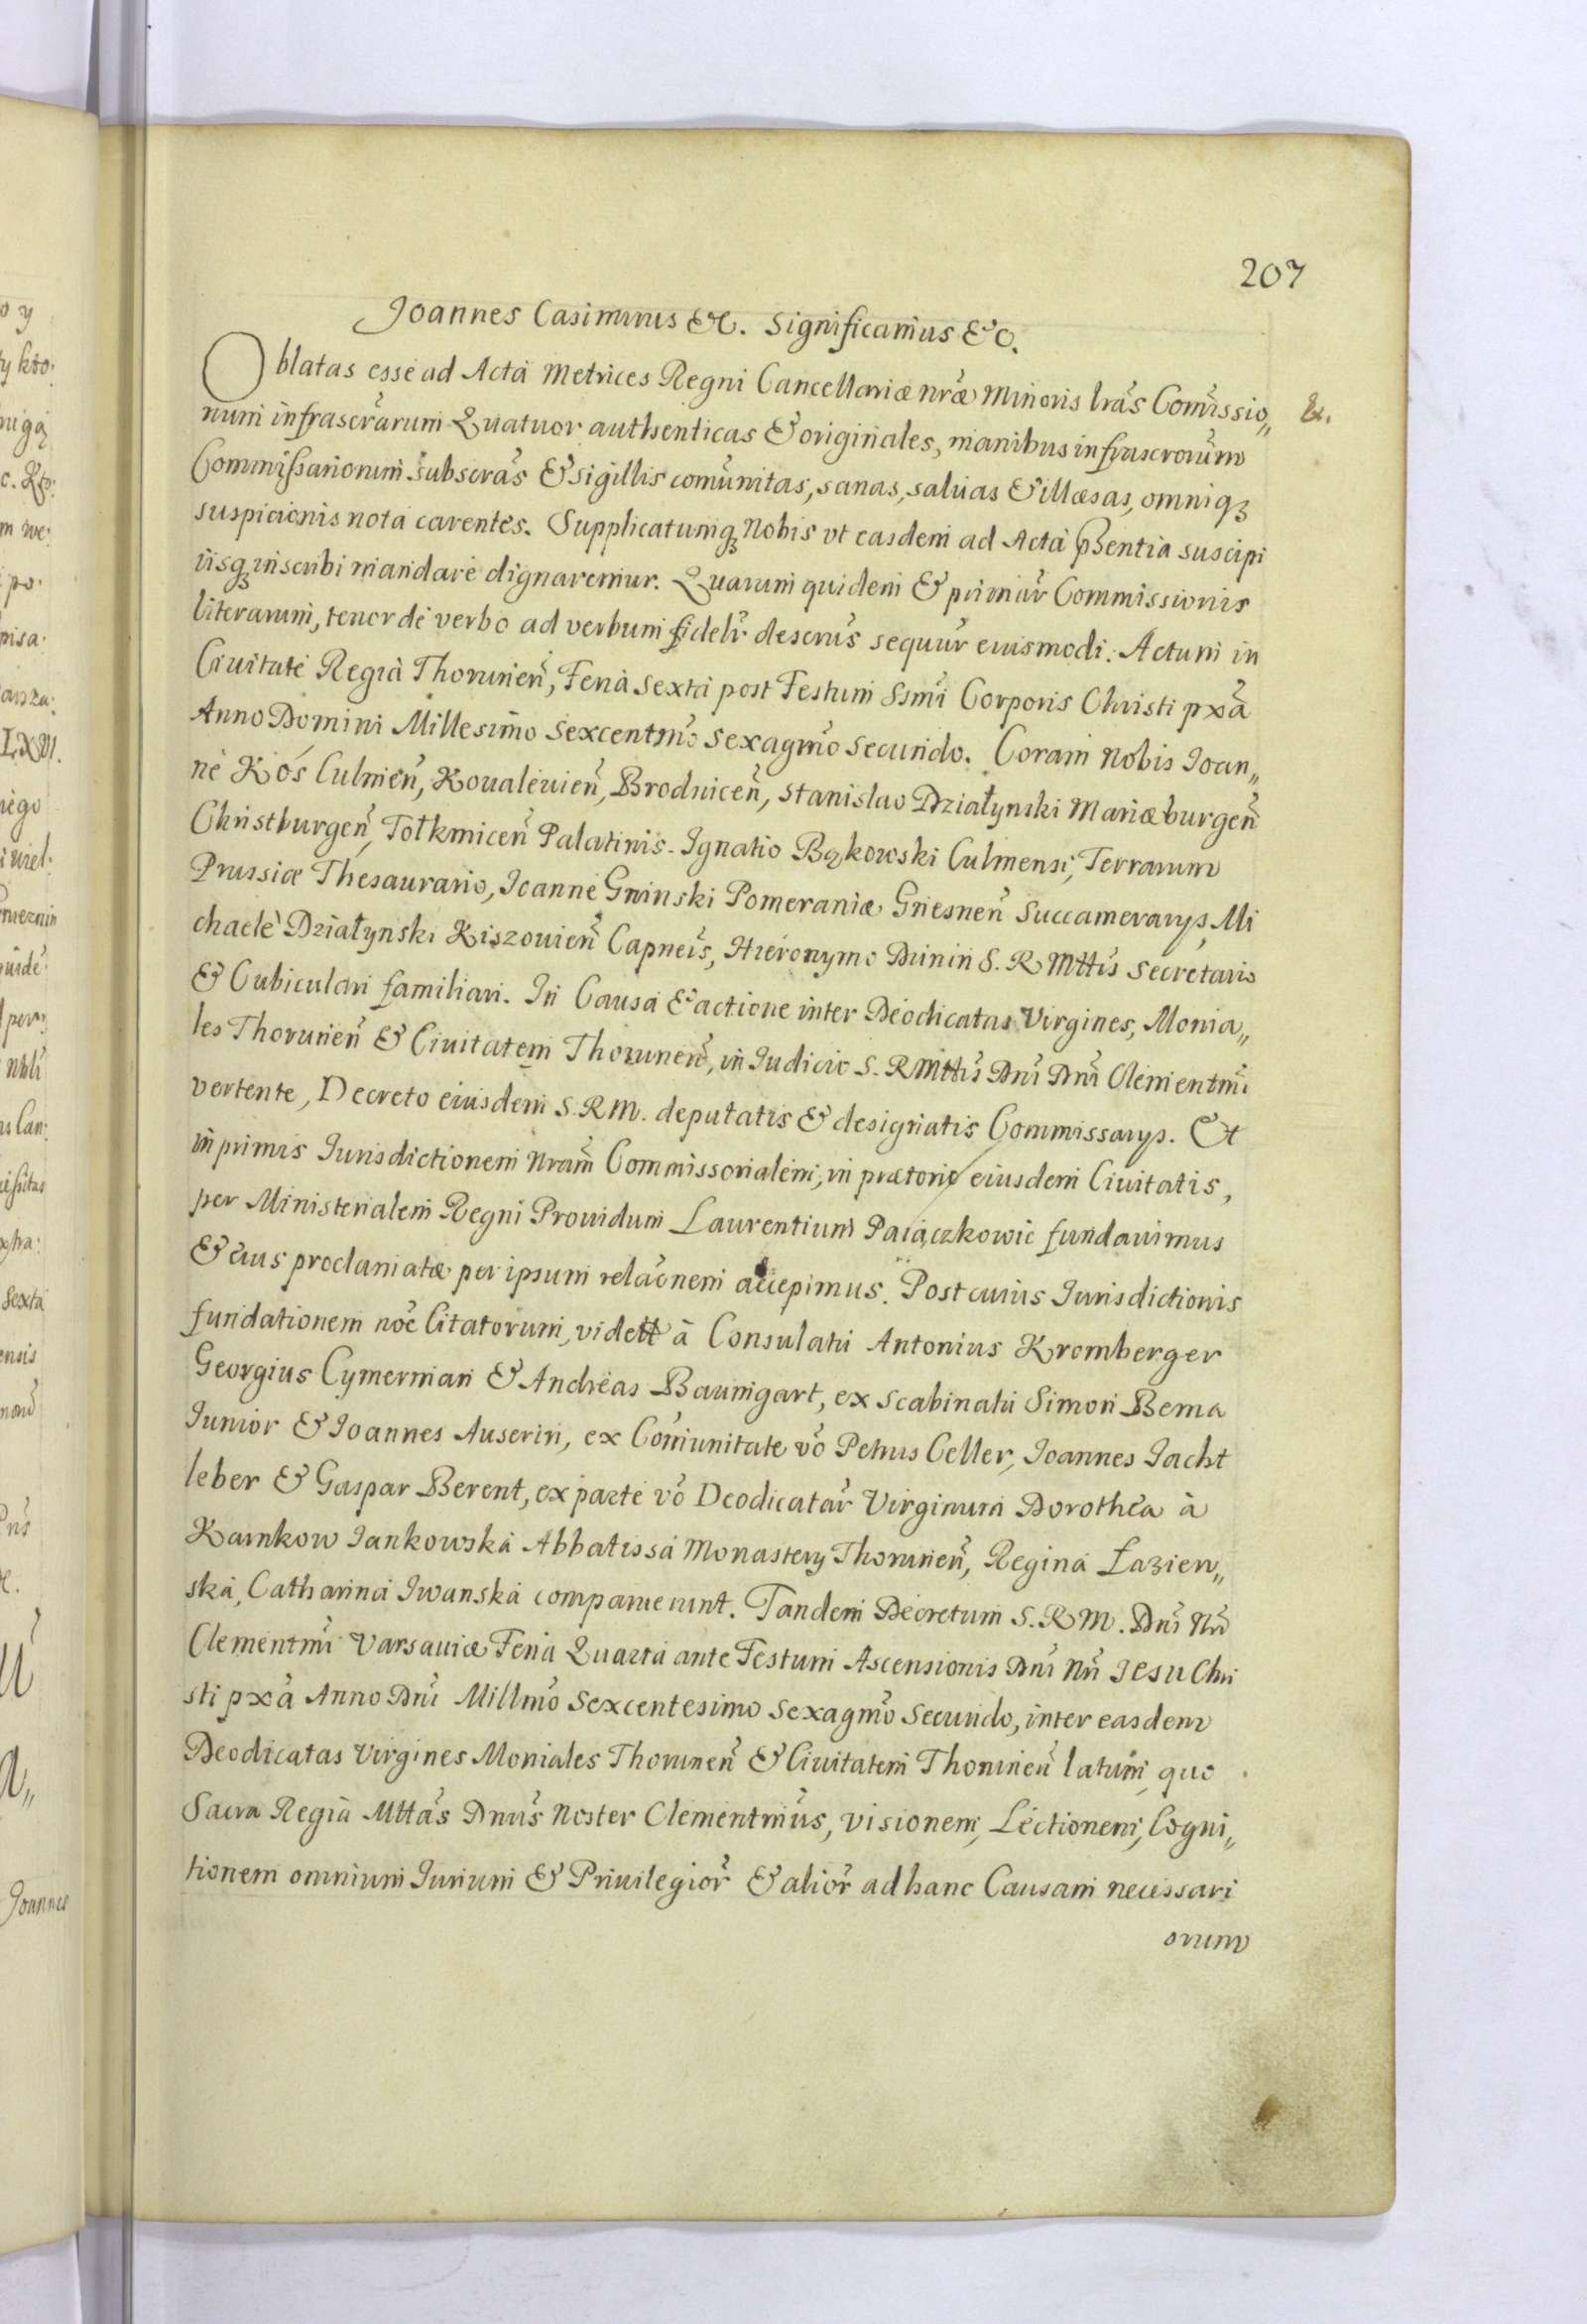 207
Joannes Casimirus &c. Significamus &c.
Oblatas esse ad Acta Metrices Regni Cancellariæ nræ Minoris lras Comissio„ &.
num infrascrarum Quatuor authenticas & originales, manibus infrascrorum
Commissariorum subscras & sigillis comunitas, sanas, saluas & illæsas, omniq3
suspicionis nota carentes. Supplicatumq3 Nobis vt easdem ad Acta p̃sentia suscipi
iisq3 inscribi mandare dignaremur. Quarum quidem & primar Commissionis
literarum, tenor de verbo ad verbum fidelr descrus sequur eiusmodi. Actum in
Ciuitate Regia Thorunen̄, Feria sexta post Festum Ssmi Corporis Christi pxa
Anno Domini Millesimo Sexcentmo Sexagmo Secundo. Coram Nobis Ioan„
ne Kos Culmen̄, Koualeuien̄, Brodnicen̄, Stanislao Działynski Mariæburgen̄
Christburgen̄, Tolkmicen̄ Palatinis. Ignatio Bąkowski Culmensi, Terrarum
Prussiæ Thesaurario, Ioanne Gninski Pomeraniæ Gnesnen̄ Succamerarys, Mi
chaele Działynski Kiszouien̄ Capneis, Hieronymo Dunin S. R Mttis Secretario
& Cubiculari familiari. In Causa & actione inter Deodicatas Virgines, Monia„
les Thorunen̄ & Ciuitatem Thorunen̄, in Iudicio S. R Mttis Dni Dni Clementmi
vertente, Decreto eiusdem S. R M. deputatis & designatis Commissarys. Et
inprimis Iurisdictionem nram Commissorialem, in prætorio eiusdem Ciuitatis,
per Ministerialem Regni Prouidum Laurentium Paiączkowic fundauimus
& eius proclamatæ per ipsum relaonem accepimus. Post cuius Iurisdictionis
fundationem noe Citatorum, vidett à Consulatu Antonius Kromberger
Georgius Cymerman & Andreas Baumgart, ex Scabinatu Simon Bema
Iunior & Ioannes Auserin, ex Comunitate vo Petrus Celler, Ioannes Iacht
leber & Gaspar Berent, ex parte vo Deodicatar Virginum Dorothea à
Karnkow Iankowska Abbatissa Monastery Thorunen̄, Regina Łazien„
ska, Catharina Iwanska comparuerunt. Tandem Decretum S. R M. Dni Nri
Clementmi Varsauiæ Feria Quarta ante Festum Ascensionis Dni Nri Iesu Chri
sti pxa Anno Dni Millmo Sexcentesimo Sexagmo Secundo, inter easdem
Deodicatas Virgines Moniales Thorunen̄ & Ciuitatem Thorunen̄ latum, quo
Sacra Regia Mttas Dnus Noster Clementmus, visionem, Lectionem, Cogni„
tionem omnium Iurium & Priuilegior & alior ad hanc Causam necessari
orum